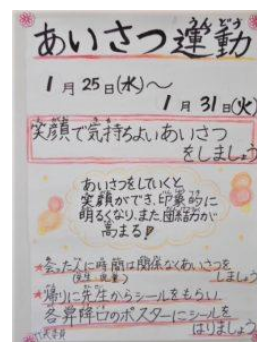 あいさつ運動
うんどう
1月25日(水)〜
1月31日(火)
笑顔で気持ちよいあいさつ
をしましょう
あいさつをしていくと
笑顔ができ、印象的に
明るくなり、また団結力が
高まる!
★会った人に時間は関係なくあいさつを
しましょう
★帰りに先生からシールをもらい
各昇降口のポスターにシールを
はりましょう